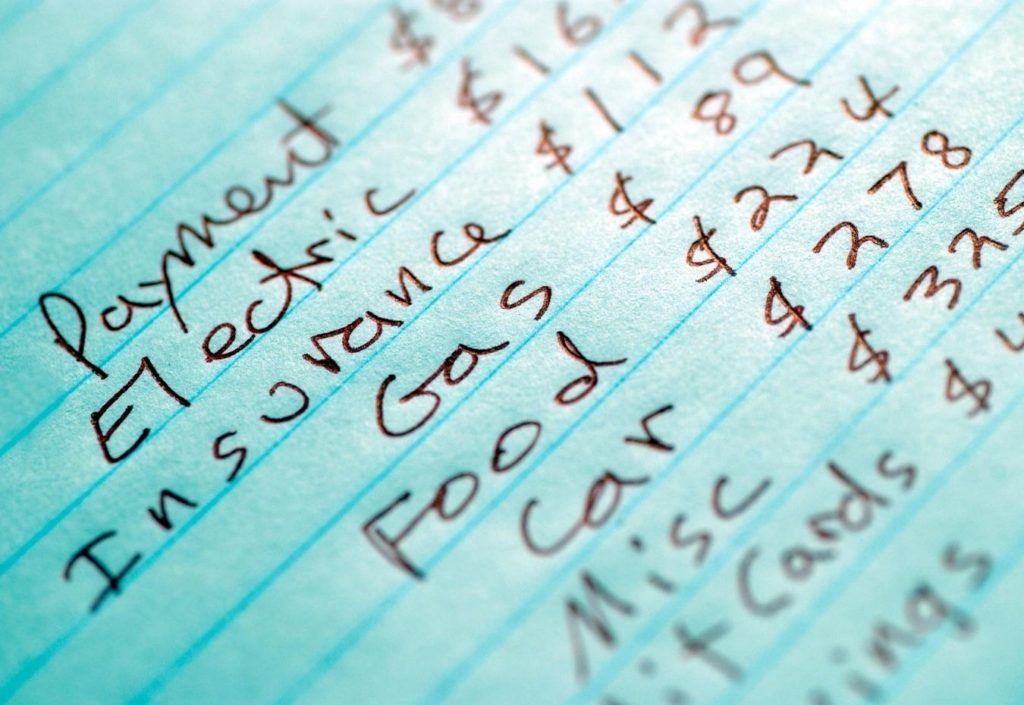 Payment $8
Electric $16
Insurance $112
Gas $89
Food $224
Car $278
Misc $325
it Cards $
ings